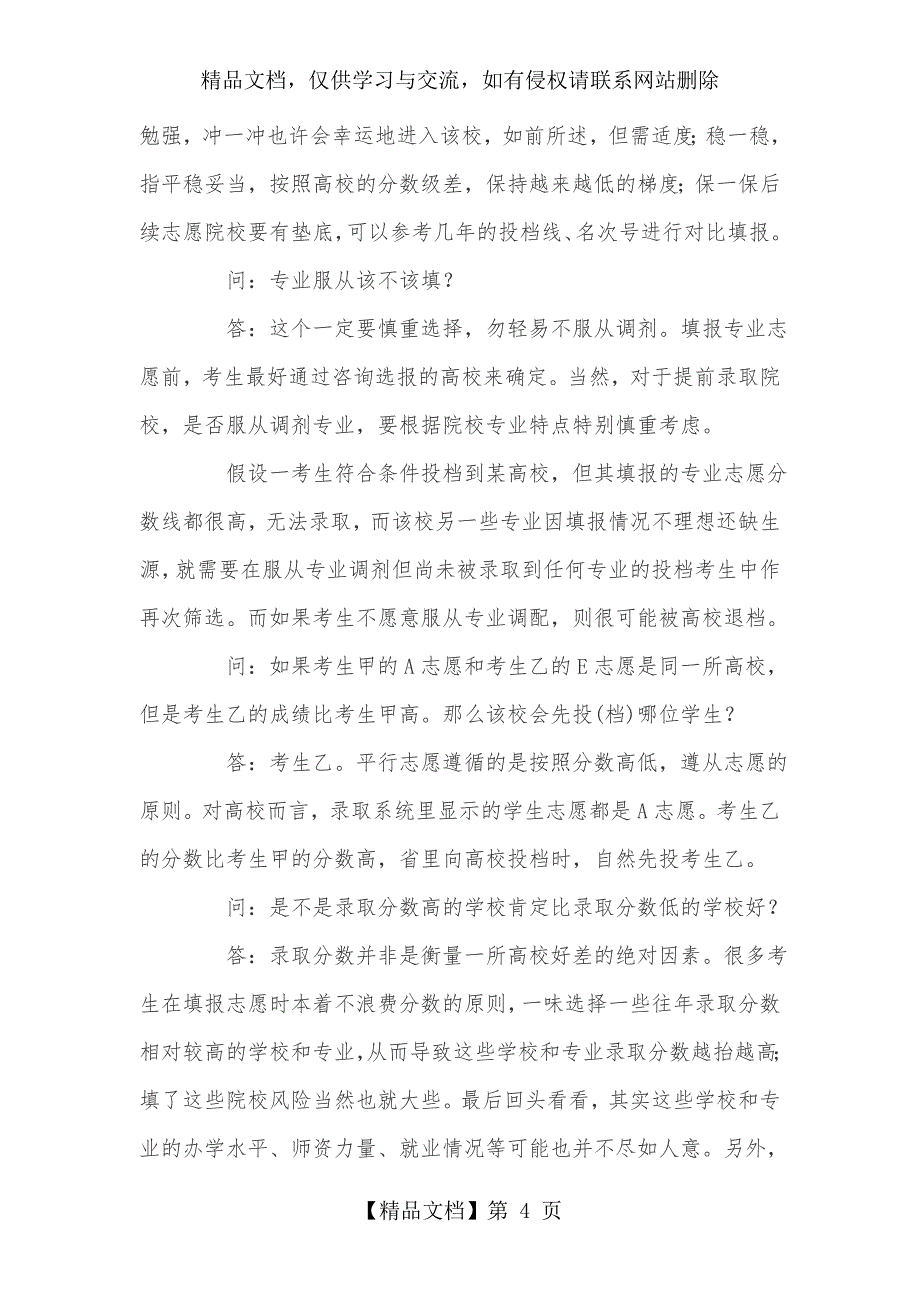 精品文档，仅供学习与交流，如有侵权请联系网站删除
勉强，冲一冲也许会幸运地进入该校，如前所述，但需适度；稳一稳，
指平稳妥当，按照高校的分数级差，保持越来越低的梯度；保一保后
续志愿院校要有垫底，可以参考几年的投档线、名次号进行对比填报。
问：专业服从该不该填？
答：这个一定要慎重选择，勿轻易不服从调剂。填报专业志
愿前，考生最好通过咨询选报的高校来确定。当然，对于提前录取院
校，是否服从调剂专业，要根据院校专业特点特别慎重考虑。
假设一考生符合条件投档到某高校，但其填报的专业志愿分
数线都很高，无法录取，而该校另一些专业因填报情况不理想还缺生
源，就需要在服从专业调剂但尚未被录取到任何专业的投档考生中作
再次筛选。而如果考生不愿意服从专业调配，则很可能被高校退档。
问：如果考生甲的 A 志愿和考生乙的 E 志愿是同一所高校，
但是考生乙的成绩比考生甲高。那么该校会先投(档)哪位学生？
答：考生乙。平行志愿遵循的是按照分数高低，遵从志愿的
原则。对高校而言，录取系统里显示的学生志愿都是 A 志愿。考生乙
的分数比考生甲的分数高，省里向高校投档时，自然先投考生乙。
问：是不是录取分数高的学校肯定比录取分数低的学校好？
答：录取分数并非是衡量一所高校好差的绝对因素。很多考
生在填报志愿时本着不浪费分数的原则，一味选择一些往年录取分数
相对较高的学校和专业，从而导致这些学校和专业录取分数越抬越高；
填了这些院校风险当然也就大些。最后回头看看，其实这些学校和专
业的办学水平、师资力量、就业情况等可能也并不尽如人意。另外，
【精品文档】第 4 页